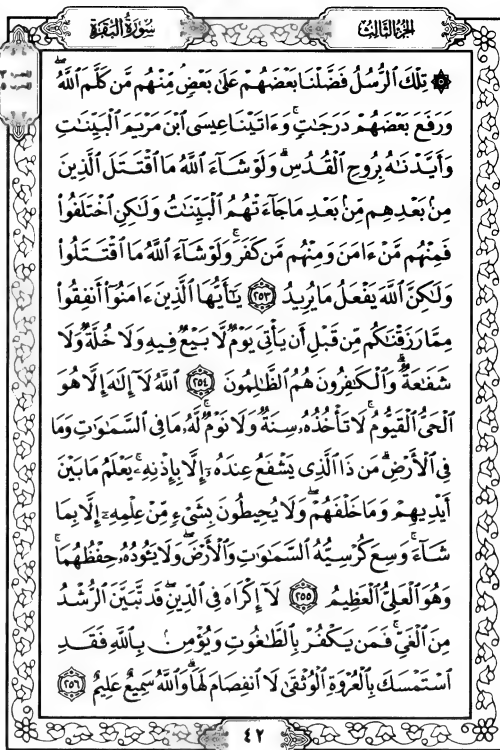 سورة البقرة
الجزء الثالث
۞ تِلْكَ ٱلرُّسُلُ فَضَّلْنَا بَعْضَهُمْ عَلَىٰ بَعْضٍۘ مِّنْهُم مَّن كَلَّمَ ٱللَّهُۖ
وَرَفَعَ بَعْضَهُمْ دَرَجَـٰتٍۚ وَءَاتَيْنَا عِيسَى ٱبْنَ مَرْيَمَ ٱلْبَيِّنَـٰتِ
وَأَيَّدْنَـٰهُ بِرُوحِ ٱلْقُدُسِۗ وَلَوْ شَآءَ ٱللَّهُ مَا ٱقْتَتَلَ ٱلَّذِينَ
مِنۢ بَعْدِهِم مِّنۢ بَعْدِ مَا جَآءَتْهُمُ ٱلْبَيِّنَـٰتُ وَلَـٰكِنِ ٱخْتَلَفُوا۟
فَمِنْهُم مَّنْ ءَامَنَ وَمِنْهُم مَّن كَفَرَۚ وَلَوْ شَآءَ ٱللَّهُ مَا ٱقْتَتَلُوا۟
وَلَـٰكِنَّ ٱللَّهَ يَفْعَلُ مَا يُرِيدُ ٢٥٣ يَـٰٓأَيُّهَا ٱلَّذِينَ ءَامَنُوٓا۟ أَنفِقُوا۟
مِمَّا رَزَقْنَـٰكُم مِّن قَبْلِ أَن يَأْتِىَ يَوْمٌ لَّا بَيْعٌ فِيهِ وَلَا خُلَّةٌ وَلَا
شَفَـٰعَةٌۗ وَٱلْكَـٰفِرُونَ هُمُ ٱلظَّـٰلِمُونَ ٢٥٤ ٱللَّهُ لَآ إِلَـٰهَ إِلَّا هُوَ
ٱلْحَىُّ ٱلْقَيُّومُۚ لَا تَأْخُذُهُۥ سِنَةٌ وَلَا نَوْمٌۚ لَّهُۥ مَا فِى ٱلسَّمَـٰوَٰتِ وَمَا
فِى ٱلْأَرْضِۗ مَن ذَا ٱلَّذِى يَشْفَعُ عِندَهُۥٓ إِلَّا بِإِذْنِهِۦۚ يَعْلَمُ مَا بَيْنَ
أَيْدِيهِمْ وَمَا خَلْفَهُمْۖ وَلَا يُحِيطُونَ بِشَىْءٍ مِّنْ عِلْمِهِۦٓ إِلَّا بِمَا
شَآءَۚ وَسِعَ كُرْسِيُّهُ ٱلسَّمَـٰوَٰتِ وَٱلْأَرْضَۖ وَلَا يَـُٔودُهُۥ حِفْظُهُمَاۚ
وَهُوَ ٱلْعَلِىُّ ٱلْعَظِيمُ ٢٥٥ لَآ إِكْرَاهَ فِى ٱلدِّينِۖ قَد تَّبَيَّنَ ٱلرُّشْدُ
مِنَ ٱلْغَىِّۚ فَمَن يَكْفُرْ بِٱلطَّـٰغُوتِ وَيُؤْمِنۢ بِٱللَّهِ فَقَدِ
ٱسْتَمْسَكَ بِٱلْعُرْوَةِ ٱلْوُثْقَىٰ لَا ٱنفِصَامَ لَهَاۗ وَٱللَّهُ سَمِيعٌ عَلِيمٌ ٢٥٦
٤٢